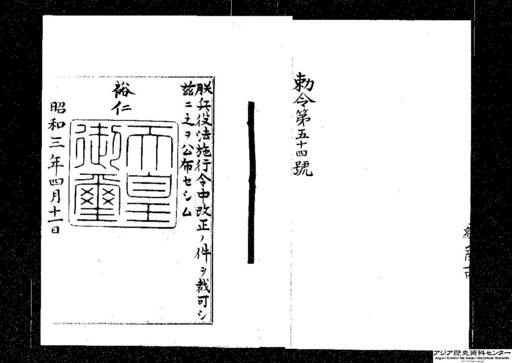 勅令第五十四號
朕兵役法施行令中改正ノ件ヲ裁可シ
茲ニ之ヲ公布セシム
裕仁
天皇御璽
昭和三年四月十一日
アジア歴史資料センター
Japan Center for Asian Historical Records